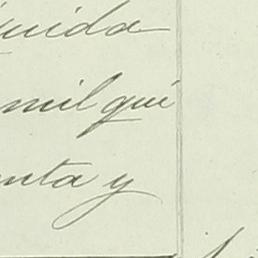 quida
mil qui
nta y